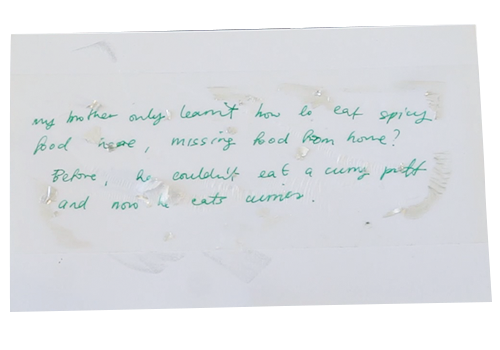 my brother only learnt how to eat spicy
food here, missing food from home?
Before, he couldn't eat a curry puff
and now he eats curries.